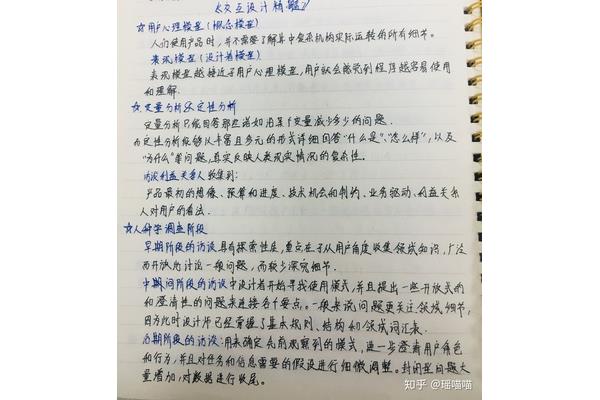 《交互设计精髓》
☆用户心理模型（概念模型）
人们使用产品时，并不需要了解其中复杂机构实际运转的所有细节。
表现模型（设计者模型）
表现模型越接近于用户心理模型，用户就会感觉到程序越容易使用
和理解.
☆定量分析&定性分析
定量分析只能回答那些诸如沿某个变量减少多少的问题.
而定性分析能够以丰富且多元的形式详细回答"什么是"、"怎么样"，以及
"为什么"等问题，真实反映人类现实情况的复杂性.
访谈利益关系人收集到:
产品最初的想像、预算和进度、技术机会和制约、业务驱动、利益关系
人对用户的看法.
☆人种学调查阶段
早期阶段的访谈具有探索性质，重点在于从用户角度收集领域知识，广泛
而开放地讨论一般问题，而较少深究细节.
中期阶段的访谈中设计者开始寻找使用模式，并且提出一些开放式的
和澄清性的问题来连接各个要点。一般来说问题更关注领域细节，
因为此时设计师已经掌握了基本规则、结构和领域词汇表.
后期阶段的访谈:用来确定先前观察到的模式，进一步澄清用户角色
和行为，并且对任务和信息需要的假设进行细微调整。封闭型问题大
量增加，对数据进行收尾。
知乎 @瑶喵喵